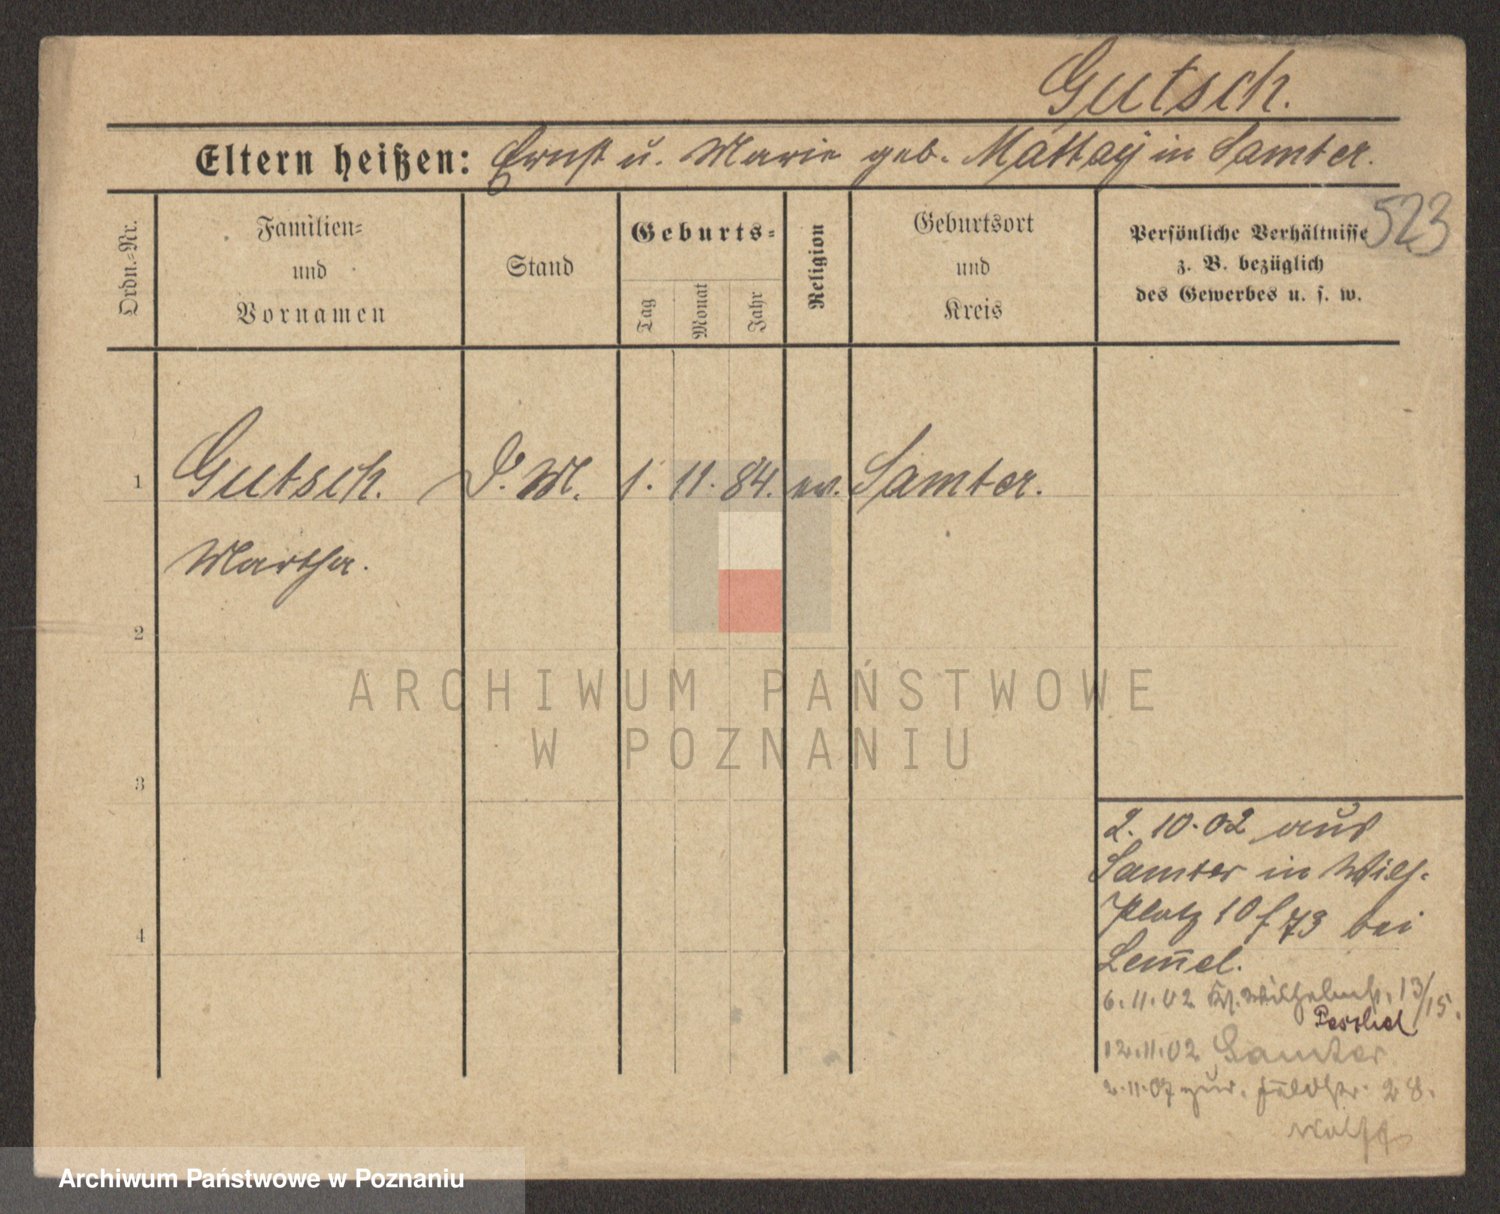 Gutsch.
Eltern heißen: Ernst u. Marie geb. Mattaÿ in Samter.
523
Ordn.-Nr.
Familien-
und
Vornamen
Stand
Geburts-
Tag
Monat
Jahr
Religion
Geburtsort
und
Kreis
Persönliche Verhältnisse
z. B. bezüglich
des Gewerbes u. s. w.
1 Gutsch. D. M. 1. 11. 84. ev. Samter.
Martha.
2
3
4
2. 10. 02 aus
Samter in Wilh.
Platz 10 f 73 bei
Lem̄el.
6. 11. 02 Kl. Wilhelmstr. 13/15.
12. 11. 02 Samter
2. 11. 07 zur. 28.
Wolff
ARCHIWUM PAŃSTWOWE
W POZNANIU
Archiwum Państwowe w Poznaniu